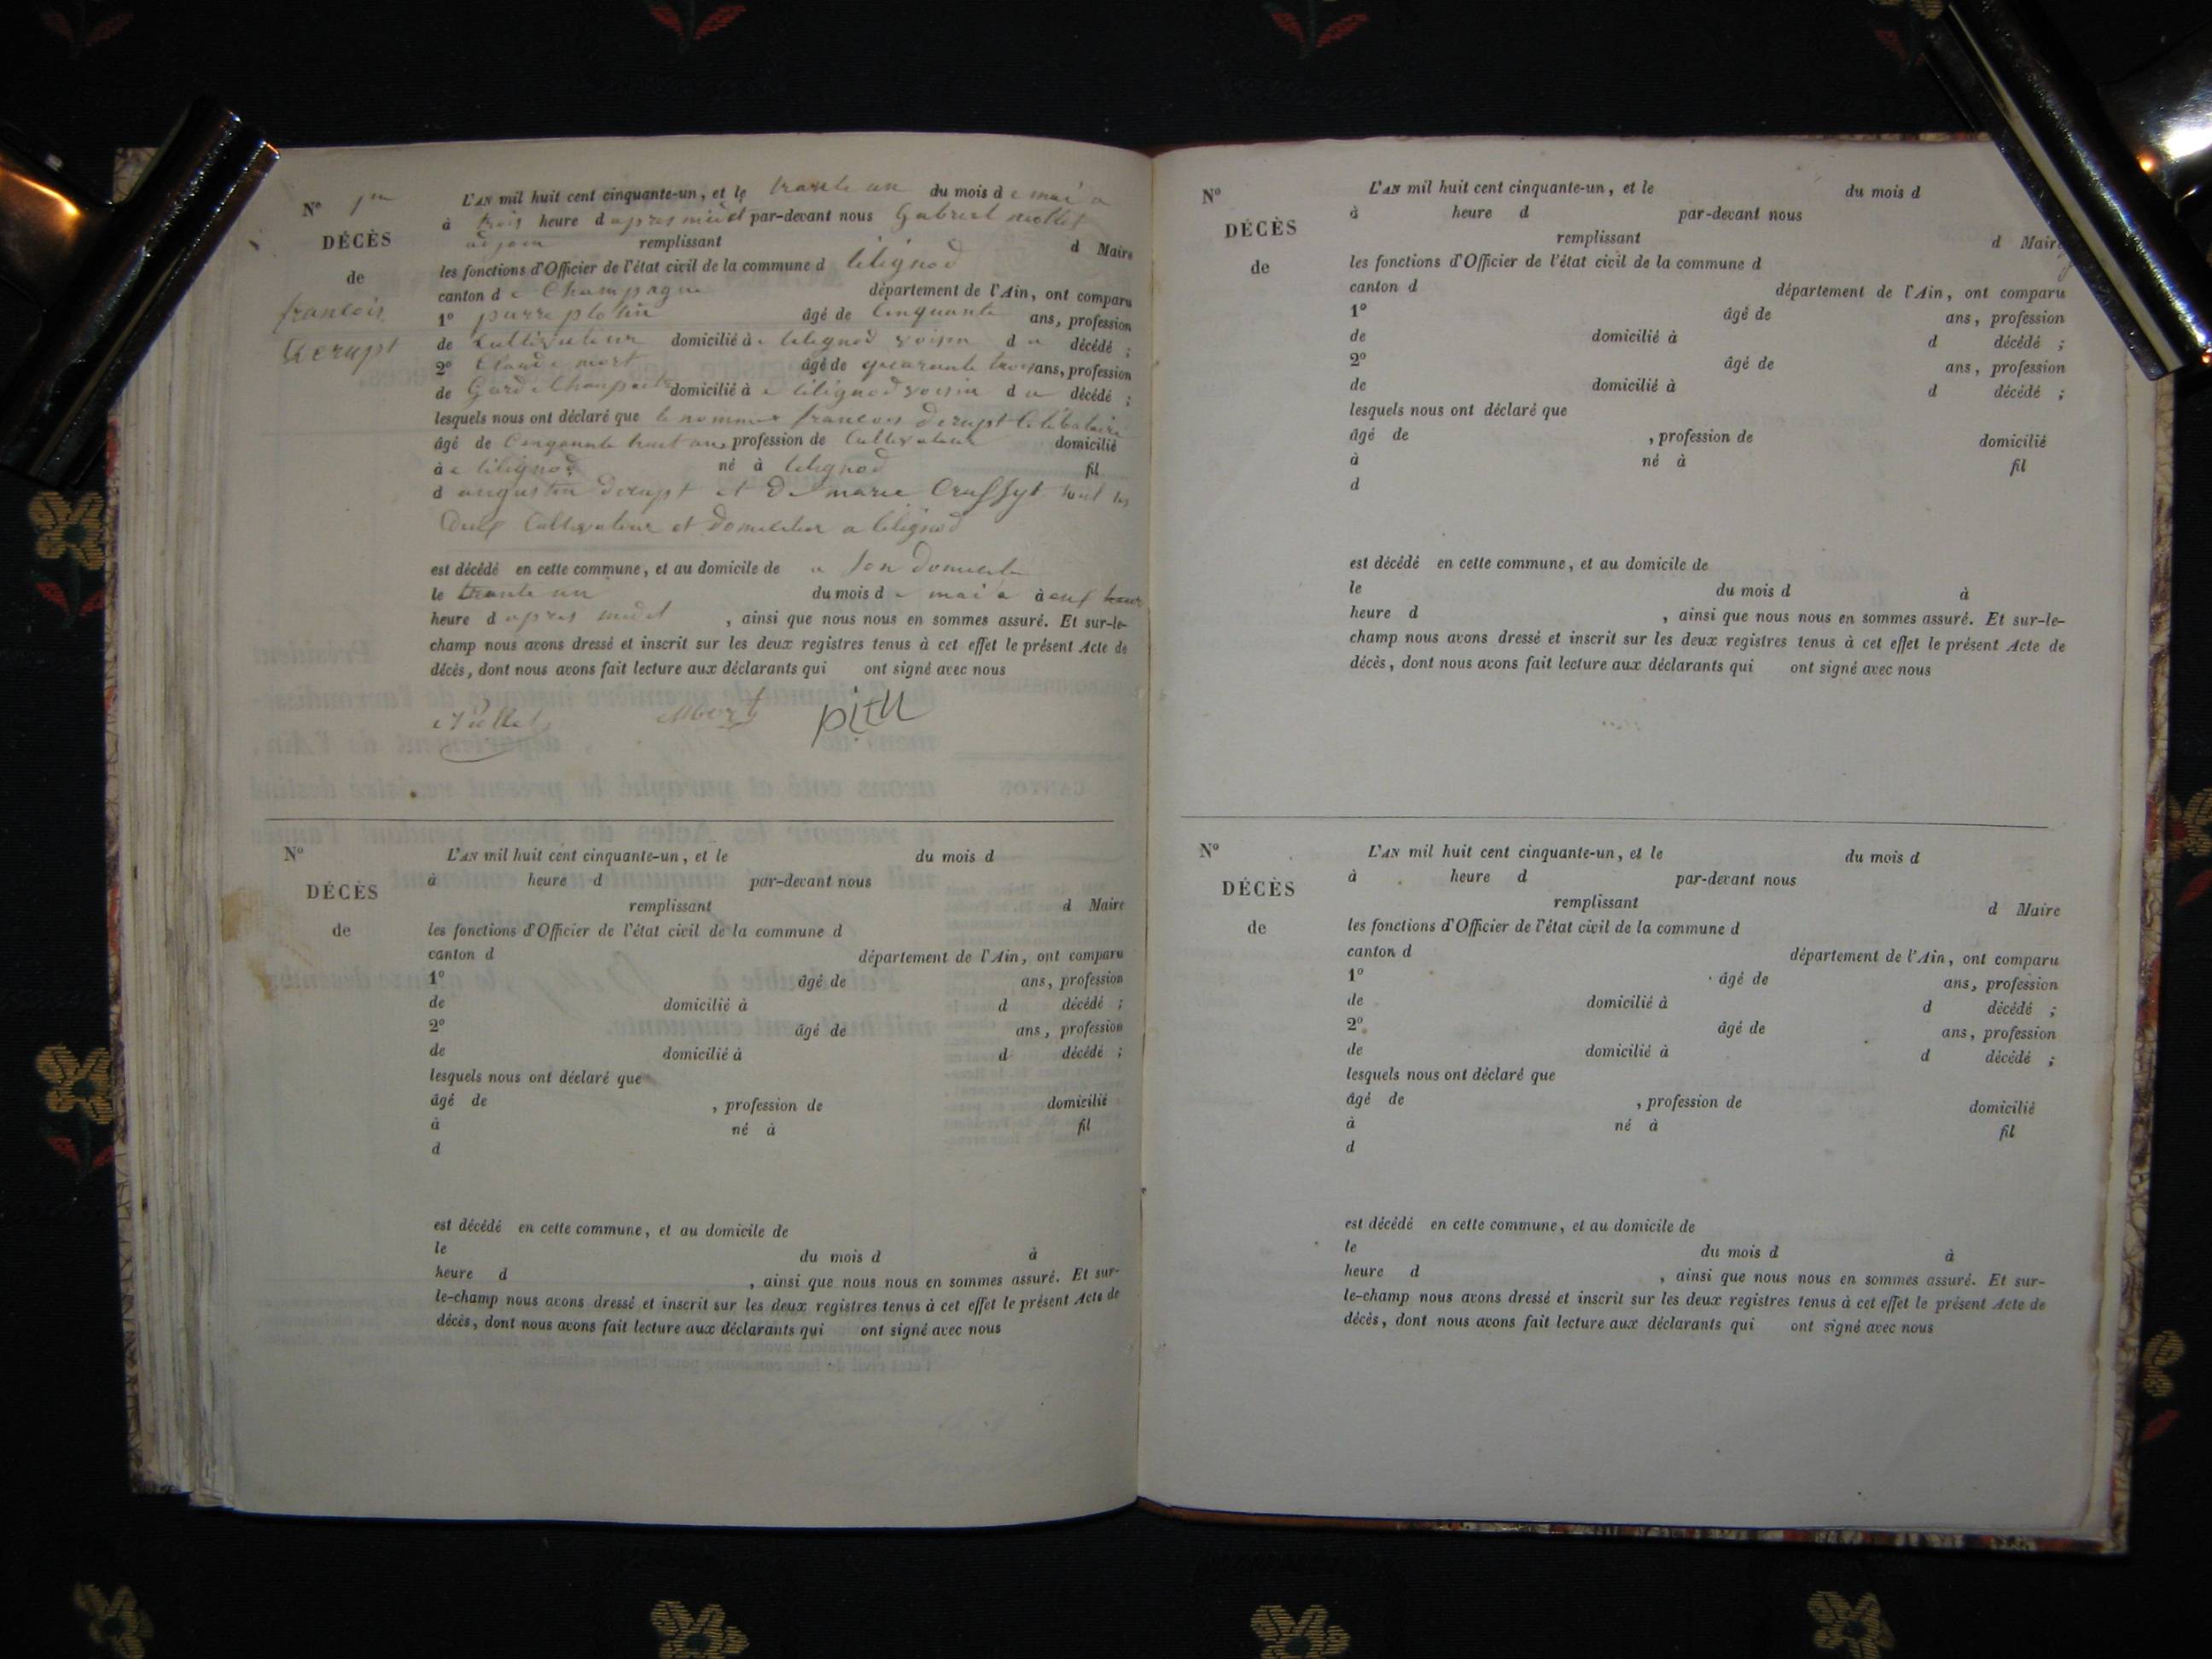 N° 1er
DÉCÈS
de
francois
Derupt
L'AN mil huit cent cinquante-un, et le trante un du mois de mai a
à trois heure d apres midi par-devant nous Gabriel mollet
adjoin remplissant d Maire
les fonctions d'Officier de l'état civil de la commune d lilignod
canton d e Champagne département de l'Ain, ont comparu
1° pierre plotin âgé de Cinquante ans, profession
de Cultivateur domicilié à lilignod voisin d u décédé ;
2° Claude mort âgé de quarante trois ans, profession
de Garde Champaitre domicilié à lilignod voisin d u décédé ;
lesquels nous ont déclaré que le nommé francois Derupt Célibataire
âgé de Cinquante huit ans, profession de Cultivateur domicilié
à lilignod né à lilignod fil
d augustin derupt et De marie tout les
Deux Cultivateur et Domicilier a lilignod
est décédé en cette commune, et au domicile de a Son Domicile
le trante un du mois d e mai a à
heure d apres midi , ainsi que nous nous en sommes assuré. Et sur-le-
champ nous avons dressé et inscrit sur les deux registres tenus à cet effet le présent Acte de
décès, dont nous avons fait lecture aux déclarants qui ont signé avec nous
Mollet Mort
N°
DÉCÈS
de
L'AN mil huit cent cinquante-un, et le du mois d
à heure d par-devant nous
remplissant d Maire
les fonctions d'Officier de l'état civil de la commune d
canton d département de l'Ain, ont comparu
1° âgé de ans, profession
de domicilié à d décédé ;
2° âgé de ans, profession
de domicilié à d décédé ;
lesquels nous ont déclaré que
âgé de , profession de domicilié
à né à fil
d
est décédé en cette commune, et au domicile de
le du mois d à
heure d , ainsi que nous nous en sommes assuré. Et sur-
le-champ nous avons dressé et inscrit sur les deux registres tenus à cet effet le présent Acte de
décès, dont nous avons fait lecture aux déclarants qui ont signé avec nous
N°
DÉCÈS
de
L'AN mil huit cent cinquante-un, et le du mois d
à heure d par-devant nous
remplissant d Maire
les fonctions d'Officier de l'état civil de la commune d
canton d département de l'Ain, ont comparu
1° âgé de ans, profession
de domicilié à d décédé ;
2° âgé de ans, profession
de domicilié à d décédé ;
lesquels nous ont déclaré que
âgé de , profession de domicilié
à né à fil
d
est décédé en cette commune, et au domicile de
le du mois d à
heure d , ainsi que nous nous en sommes assuré. Et sur-le-
champ nous avons dressé et inscrit sur les deux registres tenus à cet effet le présent Acte de
décès, dont nous avons fait lecture aux déclarants qui ont signé avec nous
N°
DÉCÈS
de
L'AN mil huit cent cinquante-un, et le du mois d
à heure d par-devant nous
remplissant d Maire
les fonctions d'Officier de l'état civil de la commune d
canton d département de l'Ain, ont comparu
1° âgé de ans, profession
de domicilié à d décédé ;
2° âgé de ans, profession
de domicilié à d décédé ;
lesquels nous ont déclaré que
âgé de , profession de domicilié
à né à fil
d
est décédé en cette commune, et au domicile de
le du mois d à
heure d , ainsi que nous nous en sommes assuré. Et sur-
le-champ nous avons dressé et inscrit sur les deux registres tenus à cet effet le présent Acte de
décès, dont nous avons fait lecture aux déclarants qui ont signé avec nous